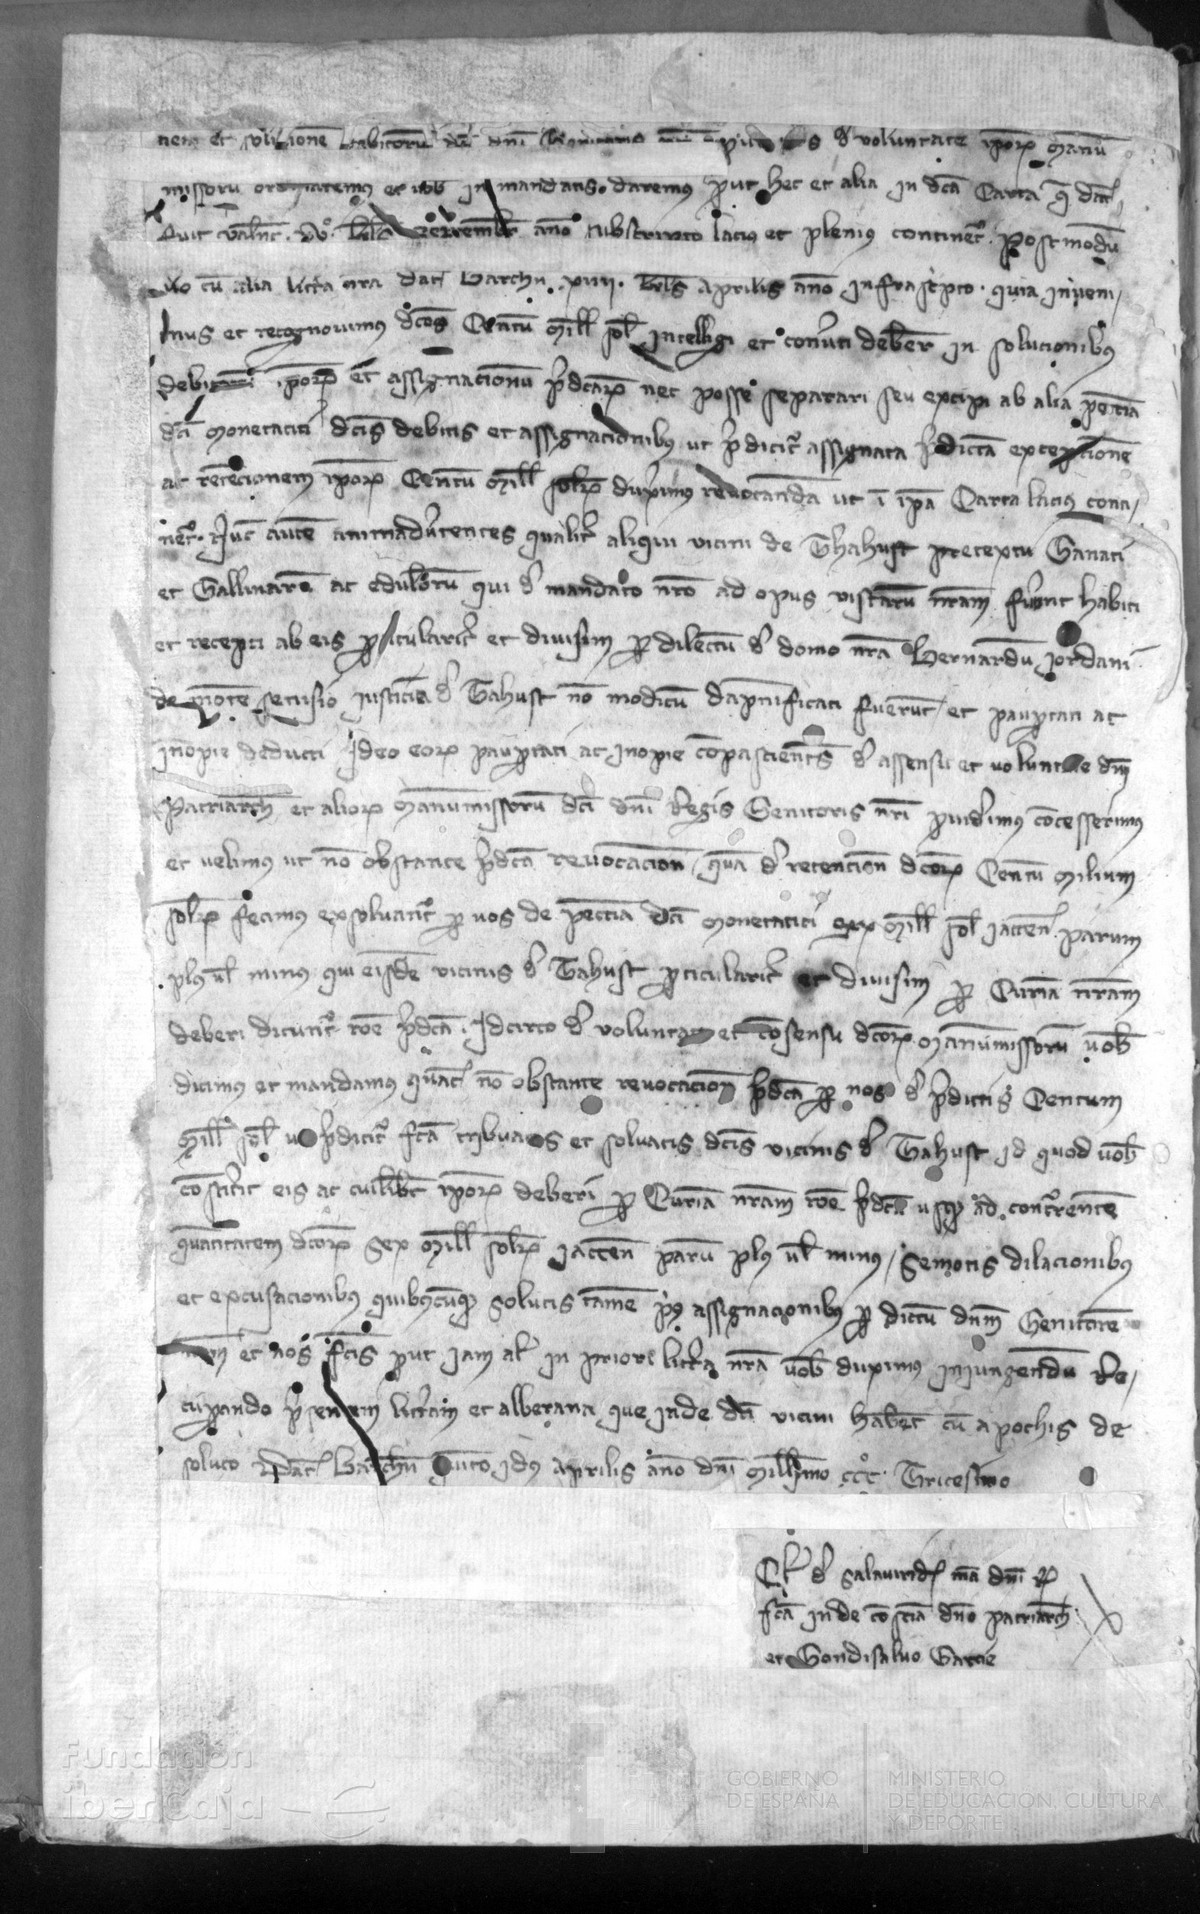 et solucionem debitorum dicti domini de voluntate ipsorum manu
missorum ordinaremus et vobis in mandatis daremus prout hec et alia in dicta Carta que data
fuit subscripto lacius et plenius continetur. Postmodum
vero cum alia littera nostra data Barchinone .XIIII. kalendas Aprilis anno infrascripto. quia inveni
mus et recognovimus dictos Centum Mille solidos intelligi et converti debere in solucionibus
debitorum ipsorum et assignacionum predictarum nec posse separari seu excipi ab alia peccunia
dicti monetatici dictis debitis et assignacionibus ut predicitur assignata predictam excepcionem
ac retencionem ipsorum Centum Mille solidorum duximus revocandam ut in ipsa Carta lacius conti
netur. Nunc autem animadvertentes qualiter aliqui vicini de Thahust pretextu Ganati
et Gallinarum ac edulorum qui de mandato nostro ad opus nostrarum fuerunt habiti
et recepti ab eis particulariter et divisim per dilectum de domo nostra Bernardum Jordani
de monte Justiciam de Tahust non modicum dapnificati fuerunt et paupertati ac
inopie deducti Ideo eorum paupertati ac inopie compacientes de assensu et voluntate domini
Patriarche et aliorum Manumissorum dicti domini Regis Genitoris nostri providimus concesserimus
et velimus ut non obstante predicta revocacione quam de retencione dictorum Centum milium
solidorum fecimus exsolvantur per vos de peccunia dicti monetatici sex Mille solidi Jaccenses parum
plus vel minus qui eisdem vicinis de Tahust particulariter et divisim per Curiam nostram
deberi dicuntur racione predicta. Idcirco de voluntate et consensu dictorum Manumissorum vobis
dicimus et mandamus quatenus non obstante revocacione predicta per nos de predictis Centum
Mille solidis ut predicitur facta tribuatis et solvatis dictis vicinis de Tahust id quod vobis
constiterit eis ac cuilibet ipsorum deberi per Curiam nostram racione predicta usque ad concurrentem
quantitatem dictorum sex Mille solidorum Jaccensium parum plus vel minus, semotis dilacionibus
et excusacionibus quibuscumque solutis tamen prius assignacionibus per dictum dominum Genitorem
nostrum et nos factis prout jam aliter in priori littera nostra vobis duximus injungendum Re
cuperando presentem litteram et alberana que inde dicti vicini habent cum apochis de
soluto Data Barchinone Quinto idus Aprilis anno domini Millesimo CCC Tricesimo
de Salaviridi mandato domini Regis
facta inde conscientia domino patriarche
et Gondisalvo Garcie
Fundación
iberCaja
GOBIERNO
DE ESPAÑA
MINISTERIO
DE EDUCACIÓN, CULTURA
Y DEPORTE